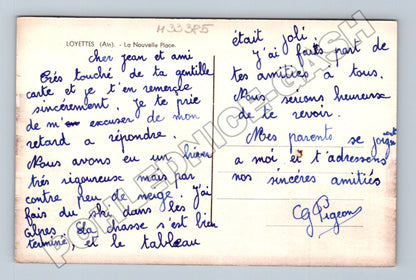 H33385
LOYETTES (Ain). - La Nouvelle Place.
cher Jean et ami
Très touché de ta gentille
carte et je t'en remercie
sincèrement. Je te prie
de m'excuser de mon
retard a répondre.
Nous avons eu un hiver
très rigoureux mais par
contre peu de neige. J'ai
fais du ski dans les
Alpes. La chasse s'est bien
terminé, et le tableau
était joli
J'ai faits part de
tes amitiés à tous.
Nous serions heureuse
de te revoir.
Mes parents se joignent
a moi et t'adressons
nos sincères amitiés
CG Pigeon
POHLEDNICH-CASH